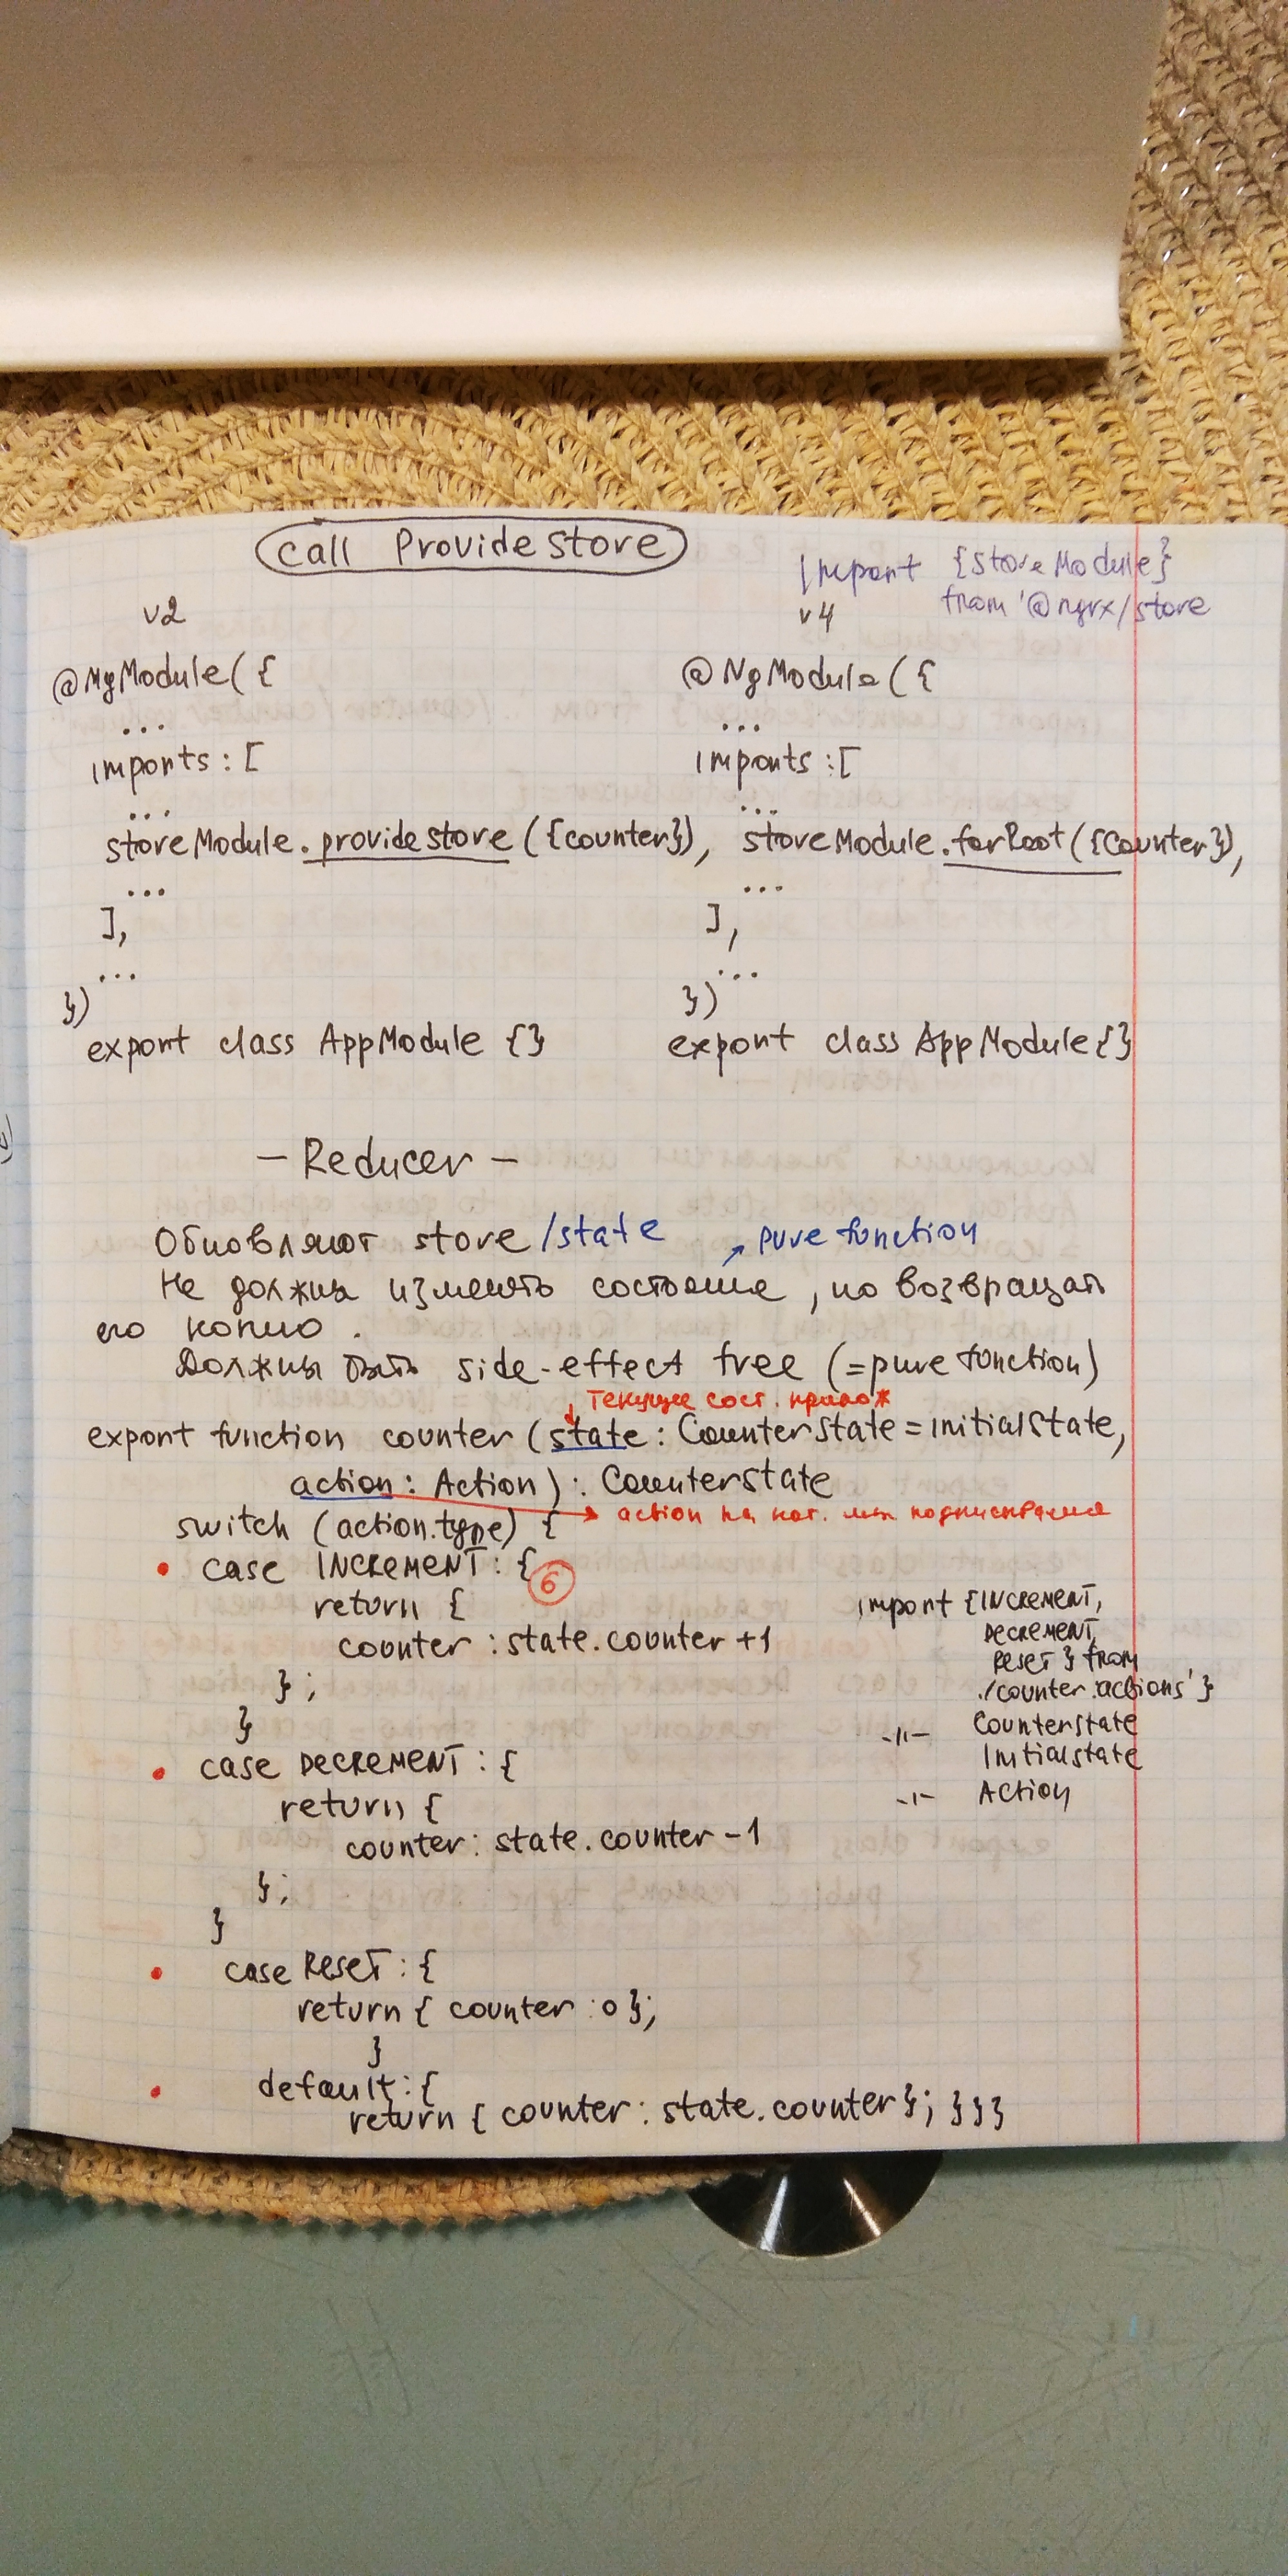 Call Providestore
import {StoreModule}
from '@ngrx/store
v2
@NgModule({
...
imports: [
...
storeModule.providestore({counter}),
...
],
...
})
export class AppModule {}
v4
@NgModule({
...
imports: [
...
storeModule.forRoot({Counter}),
...
],
...
})
export class AppModule {}
- Reducer -
Обновляют store /state
pure function
Не должны изменять состояние, но возвращать
его копию.
Должны быть side-effect free (=pure function)
текущее сост. прилож
export function counter (state: CounterState = initialstate,
action: Action): CounterState
action на кот. мы
switch (action.type) {
• case INCREMENT: {
6
return {
counter: state.counter +1
};
}
• case DECREMENT: {
return {
counter: state.counter -1
};
}
• case Reset: {
return { counter: 0 };
}
• default: {
return { counter: state.counter }; }}}
import {INCREMENT,
DECREMENT,
Reset } from
./counter.actions' }
-11- Counterstate
Initialstate
-1- Action